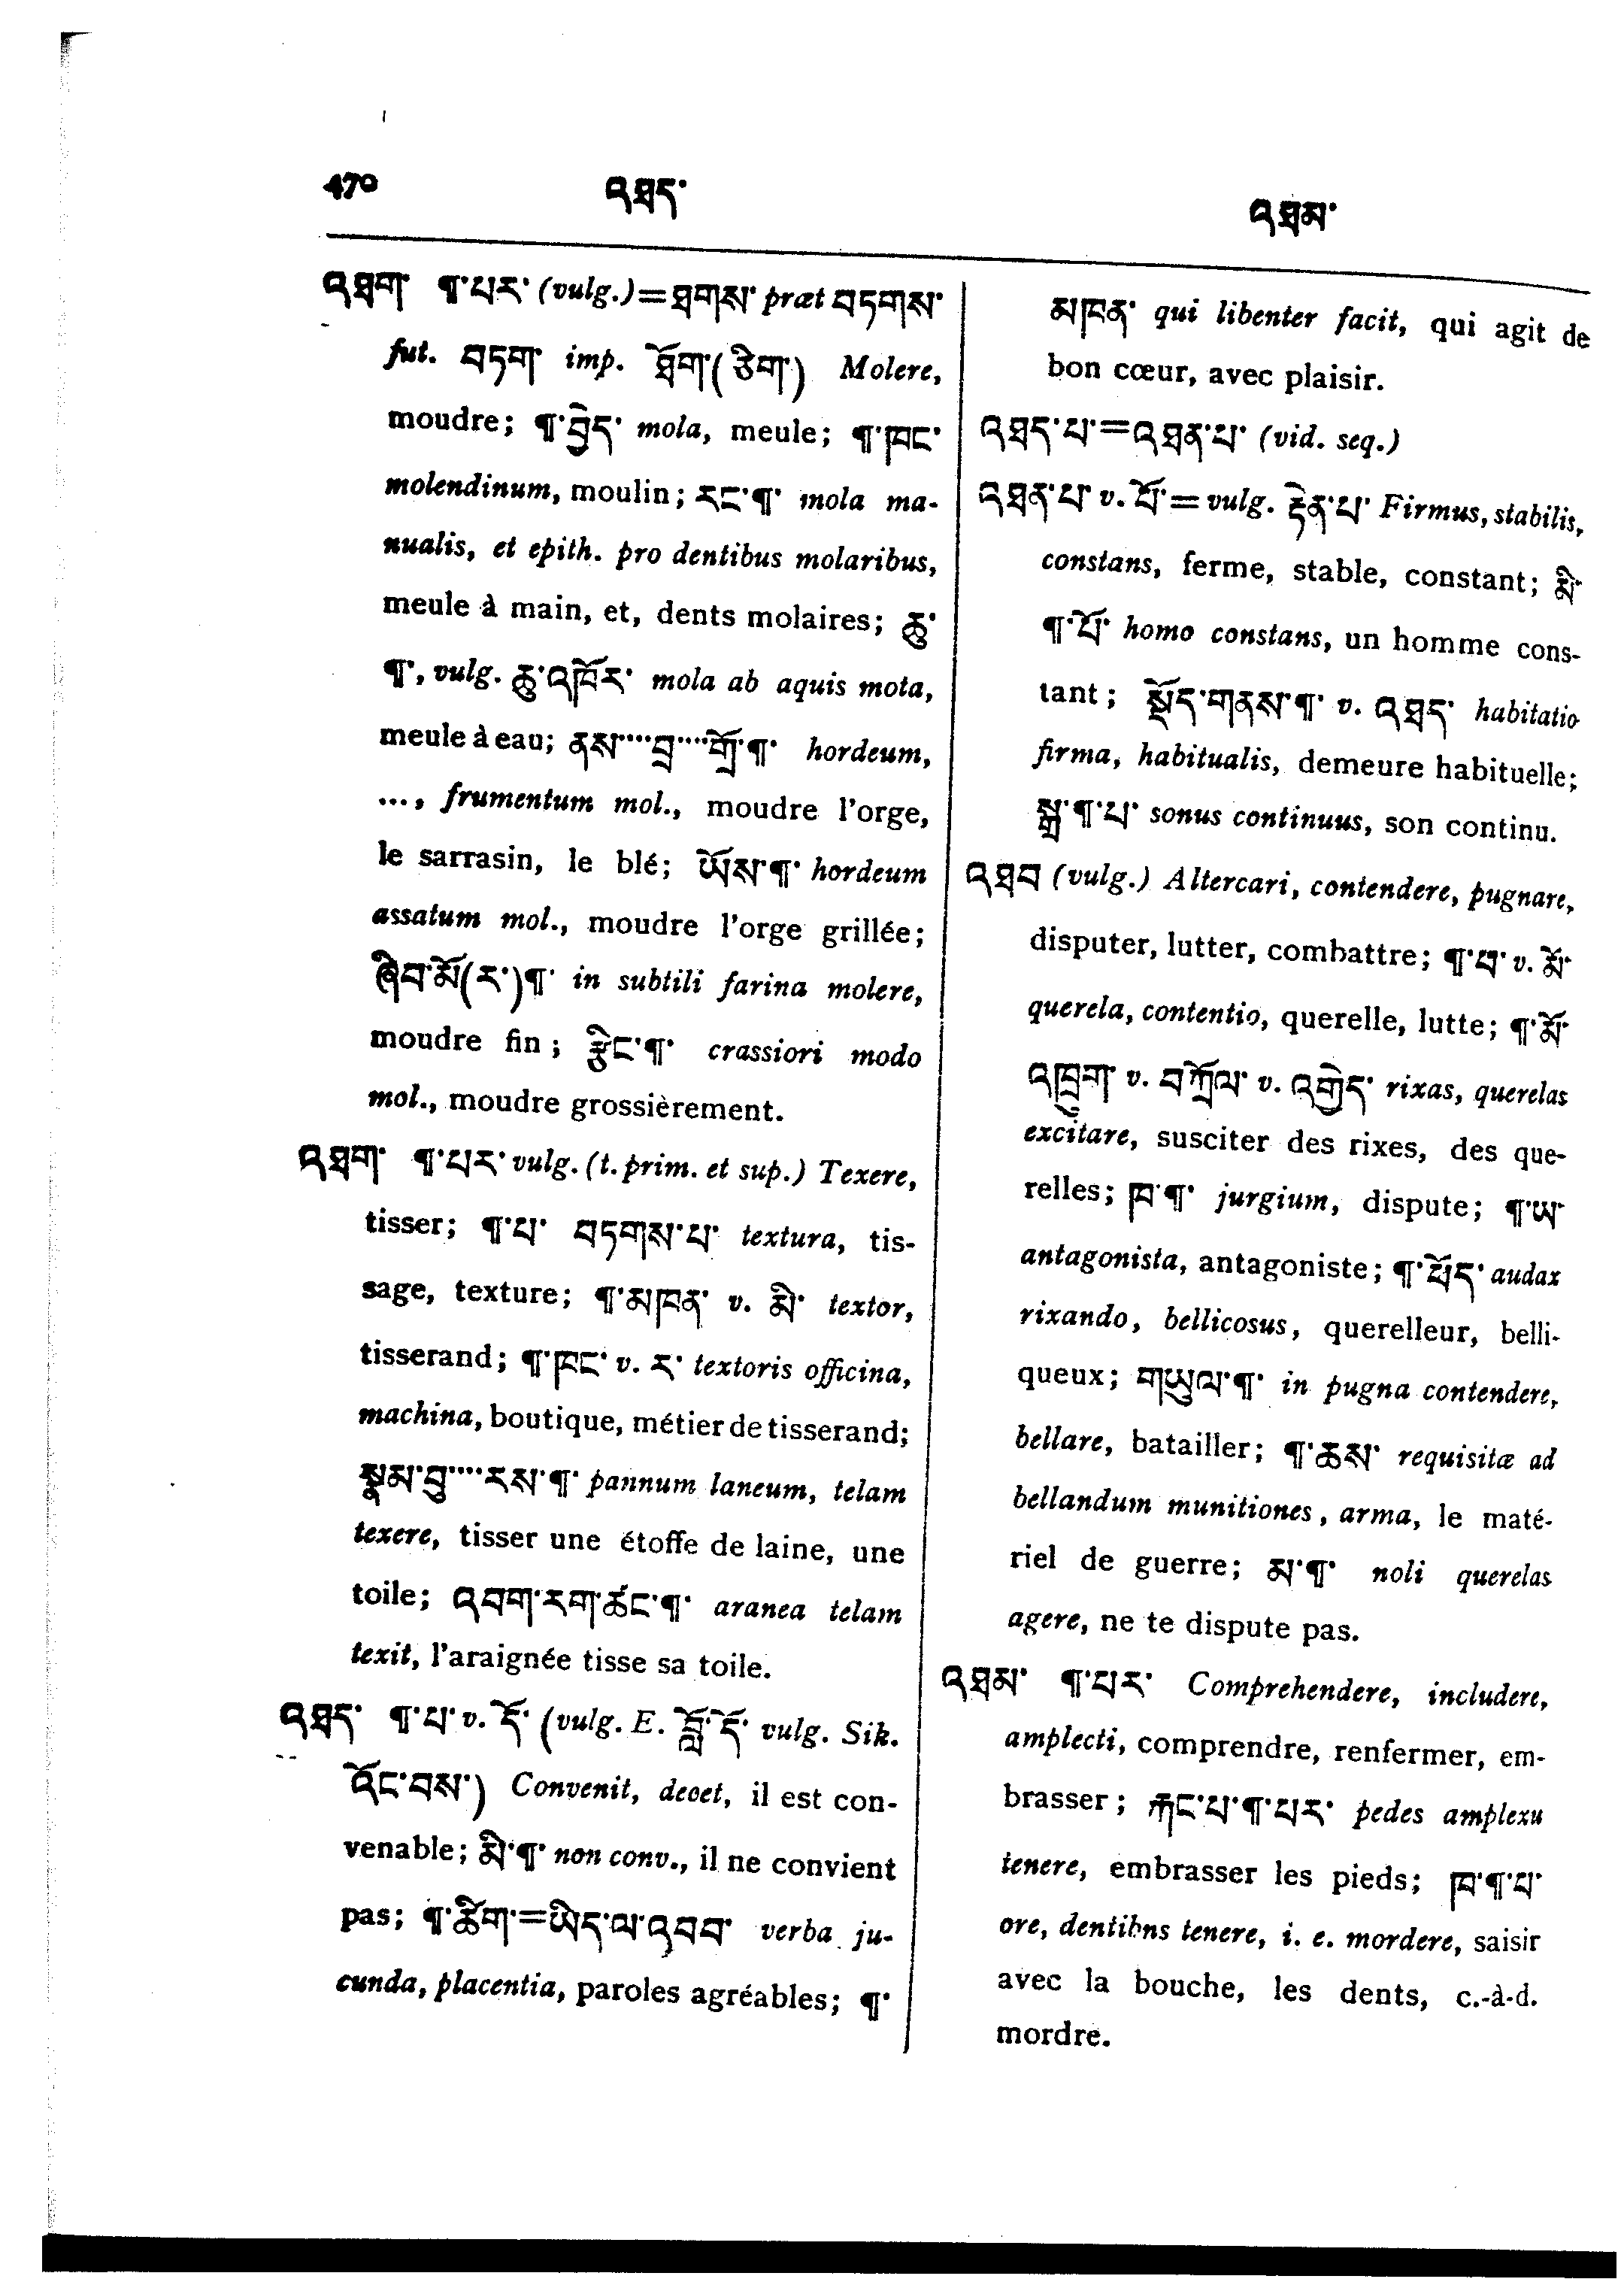 470 འཐད་ འཐམ་
འཐག་ ¶་པར་ (vulg.) = ཐགས་ præt བཏགས་
fut. བཏག་ imp. ཐོག་(ཅིག་) Molere,
moudre; ¶་བྱེད་ mola, meule; ¶་ཁང་
molendinum, moulin; རང་¶་ mola ma-
nualis, et epith. pro dentibus molaribus,
meule à main, et, dents molaires; ཆུ་
¶་, vulg. ཆུ་འཁོར་ mola ab aquis mota,
meule à eau; ནས་....བྲ་....གྲོ་¶་ hordeum,
..., frumentum mol., moudre l'orge,
le sarrasin, le blé; ཡོས་¶་ hordeum
assatum mol., moudre l'orge grillée;
ཞིབ་མོ(ར་)¶་ in subtili farina molere,
moudre fin; རྩིང་¶་ crassiori modo
mol., moudre grossièrement.
འཐག་ ¶་པར་ vulg. (t. prim. et sup.) Texere,
tisser; ¶་པ་ བཏགས་པ་ textura, tis-
sage, texture; ¶་མཁན་ v. མི་ textor,
tisserand; ¶་ཁང་ v. ར་ textoris officina,
machina, boutique, métier de tisserand;
སྣམ་བུ་....རས་¶་ pannum laneum, telam
texere, tisser une étoffe de laine, une
toile; འབག་རག་ཚང་¶་ aranea telam
texit, l'araignée tisse sa toile.
འཐད་ ¶་པ་ v. དོ་ (vulg. E. བློ་དོ་ vulg. Sik.
འོང་བས་) Convenit, decet, il est con-
venable; མི་¶་ non conv., il ne convient
pas; ¶་ཚིག་=ཡིད་ལ་འབབ་ verba ju-
cunda, placentia, paroles agréables; ¶་
མཁན་ qui libenter facit, qui agit de
bon cœur, avec plaisir.
འཐད་པ་=འཐན་པ་ (vid. seq.)
འཐན་པ་ v. པོ་ = vulg. རྟེན་པ་ Firmus, stabilis,
constans, ferme, stable, constant; མི་
¶་པོ་ homo constans, un homme cons-
tant; སྡོད་གནས་¶་ v. འཐད་ habitatio
firma, habitualis, demeure habituelle;
སྒྲ་¶་པ་ sonus continuus, son continu.
འཐབ (vulg.) Altercari, contendere, pugnare,
disputer, lutter, combattre; ¶་པ་ v. མོ་
querela, contentio, querelle, lutte; ¶་མོ་
འཁྲུག་ v. བཀྲོལ་ v. འགྱེད་ rixas, querelas
excitare, susciter des rixes, des que-
relles; ཁ་¶་ jurgium, dispute; ¶་ཡ་
antagonista, antagoniste; ¶་ཕོད་ audax
rixando, bellicosus, querelleur, belli-
queux; གཡུལ་¶་ in pugna contendere,
bellare, batailler; ¶་ཆས་ requisitæ ad
bellandum munitiones, arma, le maté-
riel de guerre; མ་¶་ noli querelas
agere, ne te dispute pas.
འཐམ་ ¶་པར་ Comprehendere, includere,
amplecti, comprendre, renfermer, em-
brasser; རྐང་པ་¶་པར་ pedes amplexu
tenere, embrasser les pieds; ཁ་¶་པ་
ore, dentibns tenere, i. e. mordere, saisir
avec la bouche, les dents, c.-à-d.
mordre.